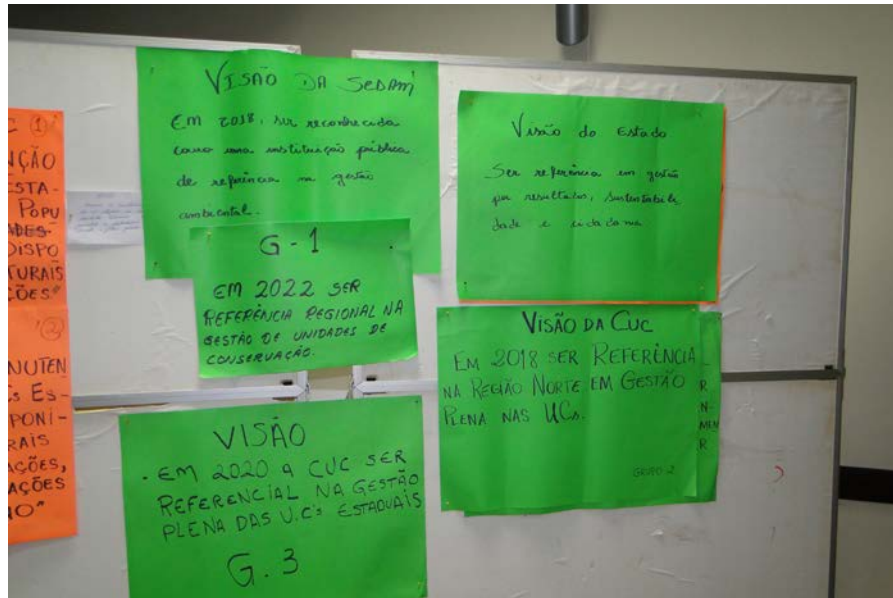 C ①
NÇÃO
ESTA-
POPU
ADES-
DISPO
TURAIS
ÇÕES"
②
NUTEN
S ES-
PONI-
RAIS
AÇÕES,
AÇÕES
ÃO"
VISÃO DA SEDAM
Em 2018, ser reconhecida
como uma instituição pública
de referência na gestão
ambiental.
G - 1
EM 2022 SER
REFERÊNCIA REGIONAL NA
GESTÃO DE UNIDADES DE
CONSERVAÇÃO.
VISÃO
. EM 2020 a CUC SER
REFERENCIAL NA GESTÃO
PLENA DAS U.C's ESTADUAIS
G. 3
Visão do Estado
Ser referência em gestão
por resultados, sustentabili
dade e cidadania
VISÃO DA CUC
EM 2018 SER REFERÊNCIA
NA REGIÃO NORTE EM GESTÃO
PLENA NAS UCs.
GRUPO 2
R
N-
MEN
R